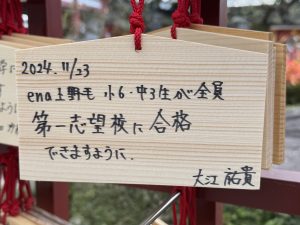 2024.11/23
ena上野毛 小6・中3生が全員
第一志望校に合格
できますように.
大江 祐貴